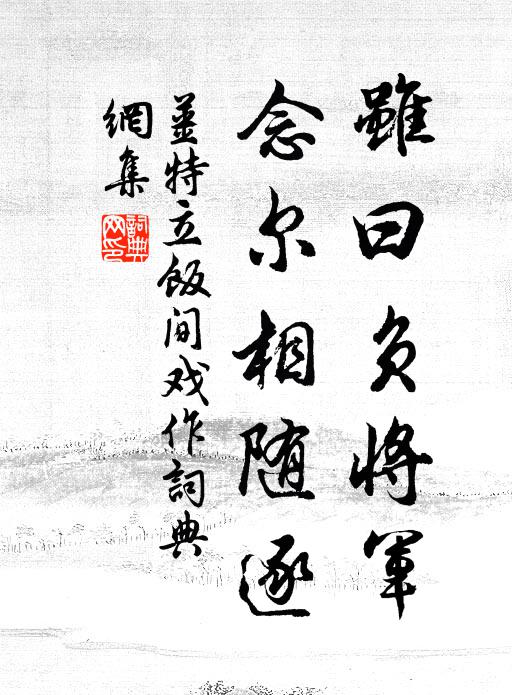 雖曰負將軍
念尔相随逐
姜特立飯间戏作詞典
網集
詞典
网印